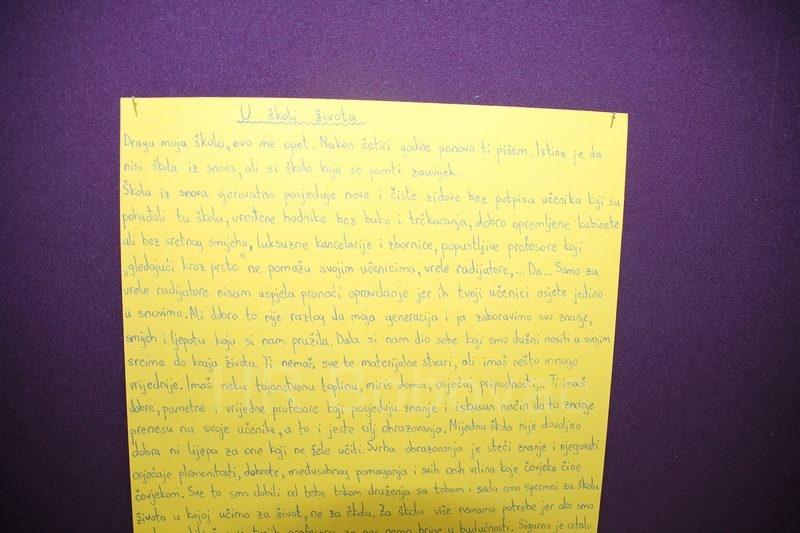 U školi života
Draga moja školo, evo me opet. Nakon četiri godine ponovo ti pišem. Istina je da
nisi škola iz snova, ali si škola koja se pamti zauvijek.
Škola iz snova vjerovatno posjeduje nove i čiste zidove bez potpisa učenika koji su
pohađali tu školu, uređene hodnike bez buke i trčkaranja, dobro opremljene kabinete
ali bez sretnog smijeha, luksuzne kancelarije i zbornice, popustljive profesore koji
„gledajući kroz prste" ne pomažu svojim učenicima, vrele radijatore,... Da... Samo za
vrele radijatore nisam uspjela pronaći opravdanje jer ih tvoji učenici osjete jedino
u snovima. Ali dobro to nije razlog da moja generacija i ja zaboravimo svo znanje,
smijeh i ljepotu koju si nam pružila. Dala si nam dio sebe koji smo dužni nositi u svojim
srcima do kraja života. Ti nemaš sve te materijalne stvari, ali imaš nešto mnogo
vrijednije. Imaš neku tajanstvenu toplinu, miris doma, osjećaj pripadnosti,... Ti imaš
dobre, pametne i vrijedne profesore koji posjeduju znanje i iskusan način da to znanje
prenesu na svoje učenike, a to i jeste cilj obrazovanja. Nijedna škola nije dovoljno
dobra ni lijepa za one koji ne žele učiti. Svrha obrazovanja je steći znanje i njegovati
osjećaje plemenitosti, dobrote, međusobnog pomaganja i svih onih vrlina koje čovjeka čine
čovjekom. Sve to smo dobili od tebe tokom druženja sa tobom i sada smo spremni za školu
života u kojoj učimo za život, ne za školu. Za školu više nemamo potrebe jer ako smo
tvojih profesora za nas nema brige u budućnosti. Sigurno je ostalo